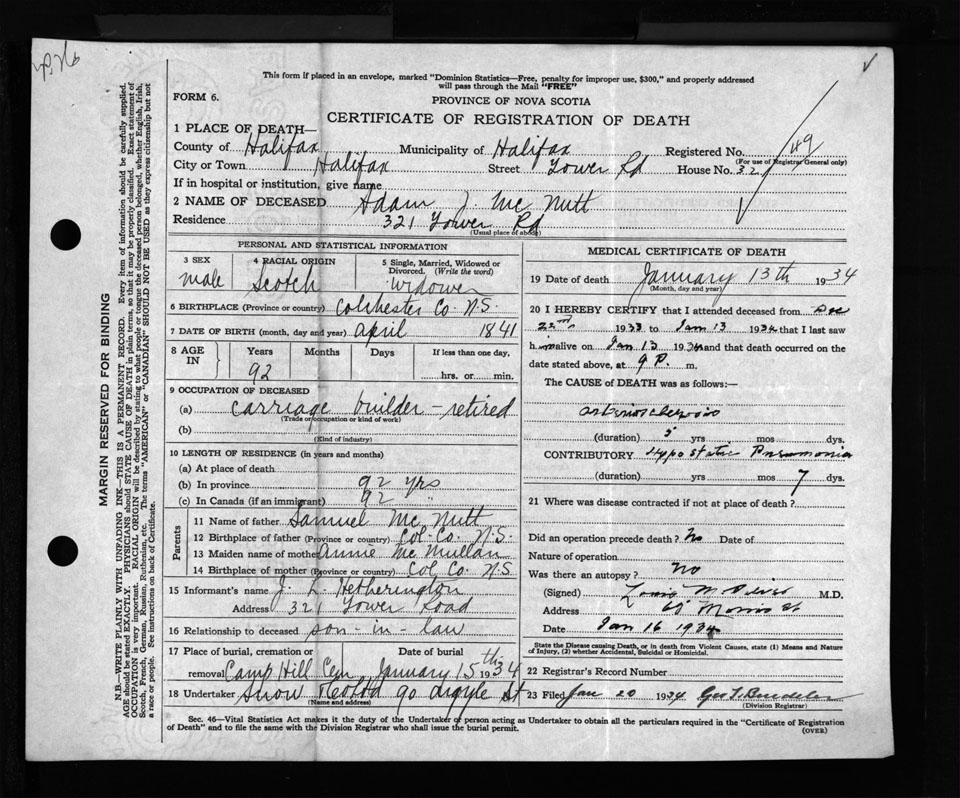 This form if placed in an envelope, marked "Dominion Statistics—Free, penalty for improper use, $300," and properly addressed
will pass through the Mail "FREE"
FORM 6.
PROVINCE OF NOVA SCOTIA
CERTIFICATE OF REGISTRATION OF DEATH
1 PLACE OF DEATH—
County of Halifax Municipality of Halifax Registered No. 49
(For use of Registrar General only)
City or Town Halifax Street Tower Rd House No. 321
If in hospital or institution, give name
2 NAME OF DECEASED Adam J. Mc Nutt
Residence 321 Tower Rd
(Usual place of abode)
PERSONAL AND STATISTICAL INFORMATION
3 SEX male
4 RACIAL ORIGIN Scotch
5 Single, Married, Widowed or Divorced. (Write the word) widower
6 BIRTHPLACE (Province or country) Colchester Co. N.S.
7 DATE OF BIRTH (month, day and year) April 1841
8 AGE IN Years 92 Months Days If less than one day, hrs. or min.
9 OCCUPATION OF DECEASED
(a) Carriage builder - retired
(Trade occupation or kind of work)
(b)
(Kind of industry)
10 LENGTH OF RESIDENCE (in years and months)
(a) At place of death
(b) In province 92 yrs
(c) In Canada (if an immigrant) 92 "
Parents
11 Name of father Samuel Mc Nutt
12 Birthplace of father (Province or country) Col. Co. N.S.
13 Maiden name of mother Annie Mc Mullan
14 Birthplace of mother (Province or country) Col. Co. N.S
15 Informant's name J. L. Hetherington
Address 321 Tower Road
16 Relationship to deceased son-in-law
17 Place of burial, cremation or removal Camp Hill Cem Date of burial January 15th 1934
18 Undertaker Snow 90 Argyle St
(Name and address)
MEDICAL CERTIFICATE OF DEATH
19 Date of death January 13th 1934
(Month, day and year)
20 I HEREBY CERTIFY that I attended deceased from Dec
22nd 1933 to Jan 13 1934 that I last saw
him alive on Jan 13 1934 and that death occurred on the
date stated above, at 9 P. m.
The CAUSE of DEATH was as follows:
arteriosclerosis
(duration) 5 yrs mos dys.
CONTRIBUTORY Hypostatic Pneumonia
(duration) yrs mos 7 dys.
21 Where was disease contracted if not at place of death?
Did an operation precede death? No Date of
Nature of operation
Was there an autopsy? No
(Signed) M.D.
Address Morris St
Date Jan 16 1934
State the Disease causing Death, or in Death from Violent Causes, state (1) Means and Nature
of Injury, (2) whether Accidental, Suicidal or Homicidal.
22 Registrar's Record Number
23 Filed Jan 20 1934
(Division Registrar)
Sec. 46—Vital Statistics Act makes it the duty of the Undertaker or person acting as Undertaker to obtain all the particulars required in the "Certificate of Registration
of Death" and to file the same with the Division Registrar who shall issue the burial permit.
(OVER)
MARGIN RESERVED FOR BINDING
N.B.—WRITE PLAINLY WITH UNFADING INK—THIS IS A PERMANENT RECORD. Every item of information should be carefully supplied.
AGE should be stated EXACTLY. PHYSICIANS should STATE CAUSE OF DEATH in plain terms, so that it may be properly classified. Exact statement of
OCCUPATION is very important. RACIAL ORIGIN will be described by stating to what people or tongue the deceased person belonged, whether English, Irish,
Scotch, French, German, Russian, Ruthenian, etc. The terms "AMERICAN" or "CANADIAN" SHOULD NOT BE USED as they express citizenship but not
a race or people. See instructions on back of Certificate.